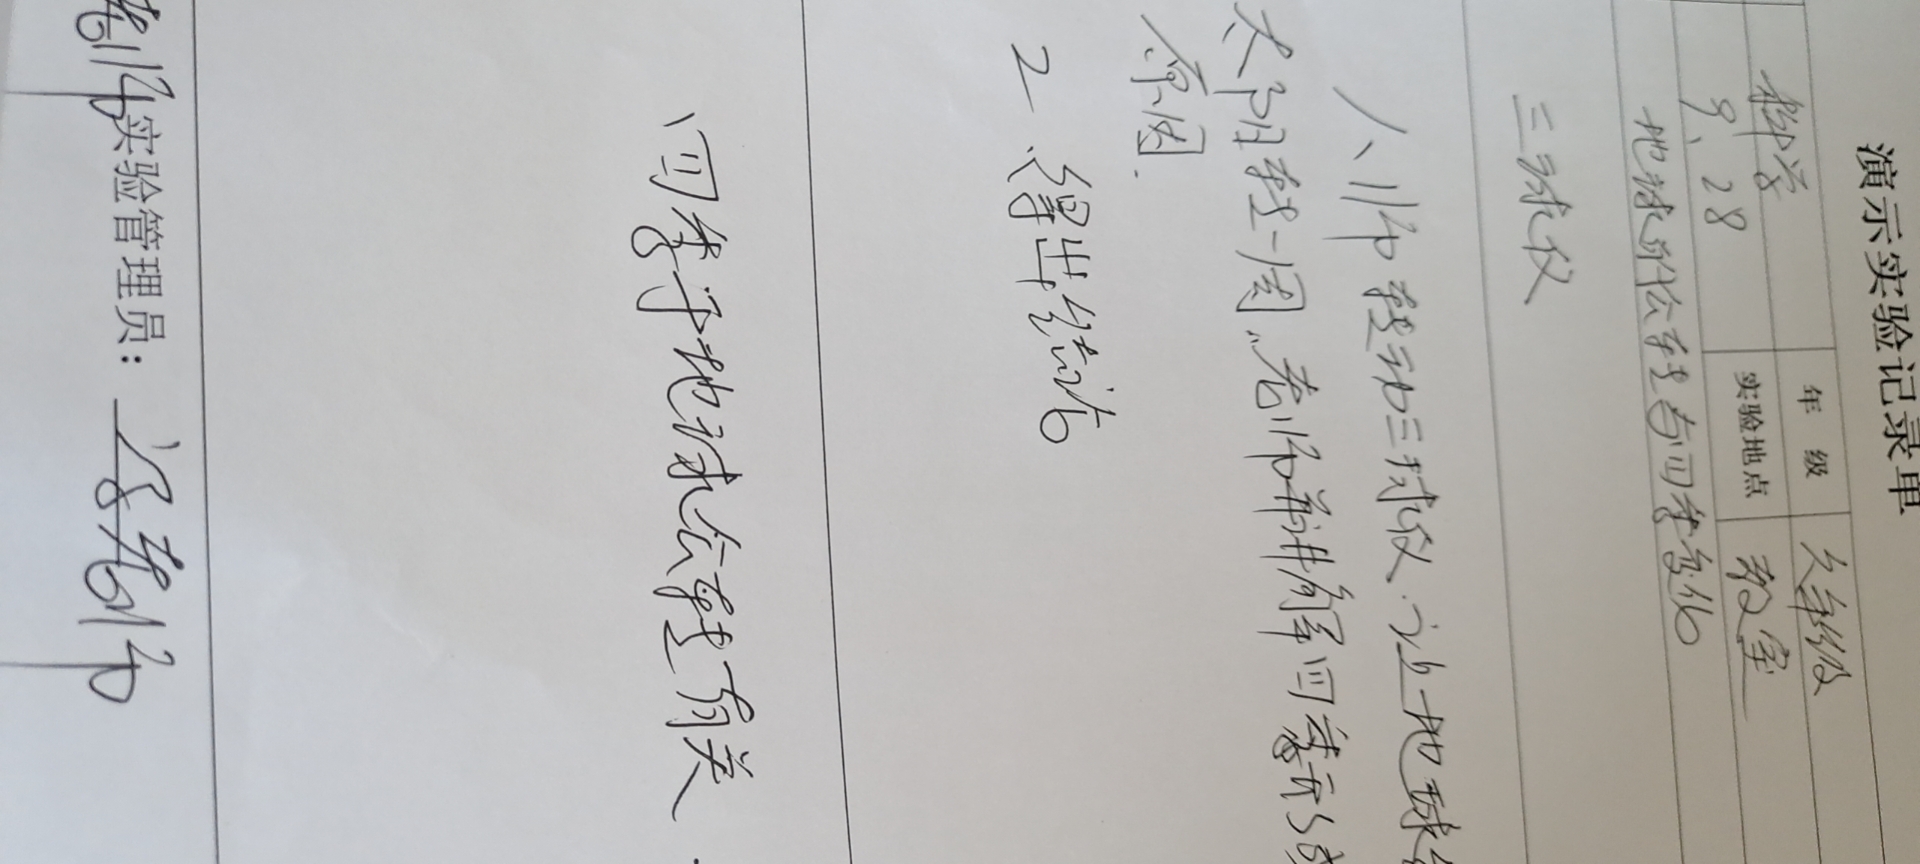 演示实验记录单
科学 年级 六年级
9、28 实验地点 教室
地球公转与四季变化
三球仪
1、师转动三球仪.让地球
太阳转一周,老师讲解四季形成
原因.
2、得出结论
四季于地球公转有关.
老师 实验管理员:老师